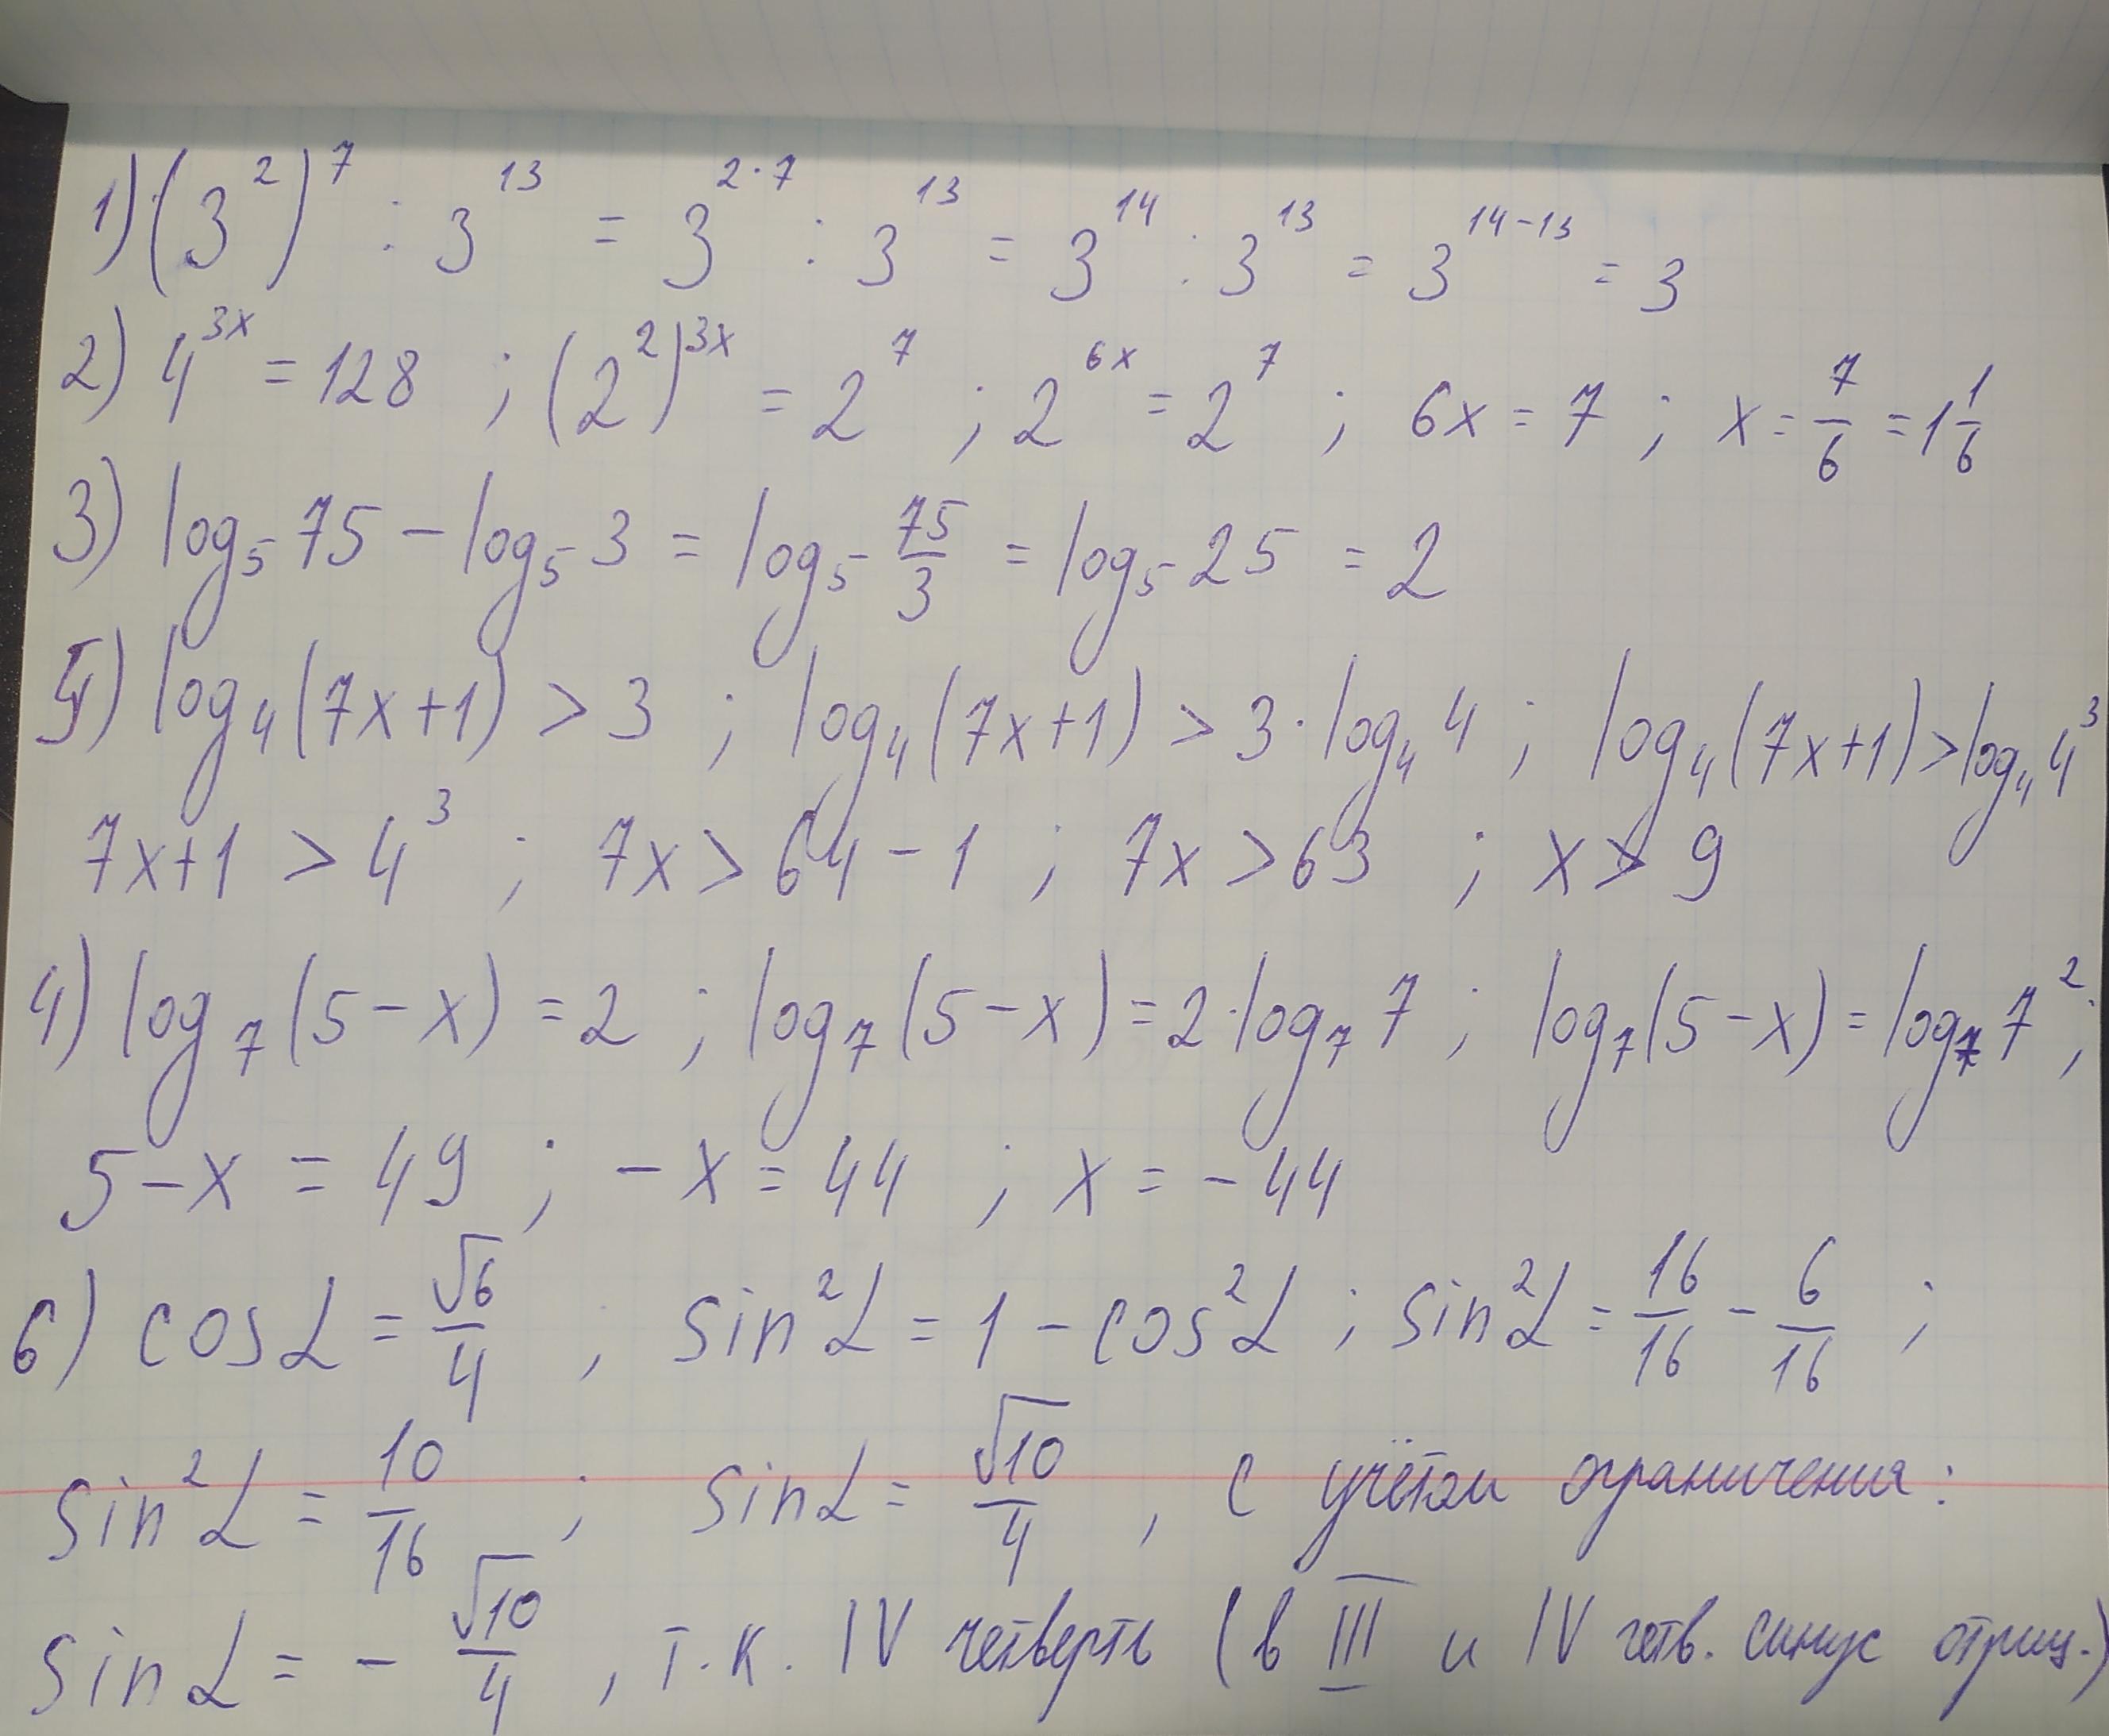 1) (3²)⁷ : 3¹³ = 3²·⁷ : 3¹³ = 3¹⁴ : 3¹³ = 3¹⁴⁻¹³ = 3
2) 4³ˣ = 128 ; (2²)³ˣ = 2⁷ ; 2⁶ˣ = 2⁷ ; 6x = 7 ; x = 7/6 = 1 1/6
3) log₅ 75 - log₅ 3 = log₅ 75/3 = log₅ 25 = 2
5) log₄ (7x+1) > 3 ; log₄ (7x+1) > 3 · log₄ 4 ; log₄ (7x+1) > log₄ 4³
7x+1 > 4³ ; 7x > 64 - 1 ; 7x > 63 ; x > 9
4) log₇ (5-x) = 2 ; log₇ (5-x) = 2 · log₇ 7 ; log₇ (5-x) = log₇ 7² ;
5-x = 49 ; -x = 44 ; x = -44
6) cos α = √6/4 , sin² α = 1 - cos² α ; sin² α = 16/16 - 6/16 ;
sin² α = 10/16 ; sin α = √10/4 , с учётом ограничения:
sin α = - √10/4 , т.к. IV четверть (в III и IV четв. синус отриц.)